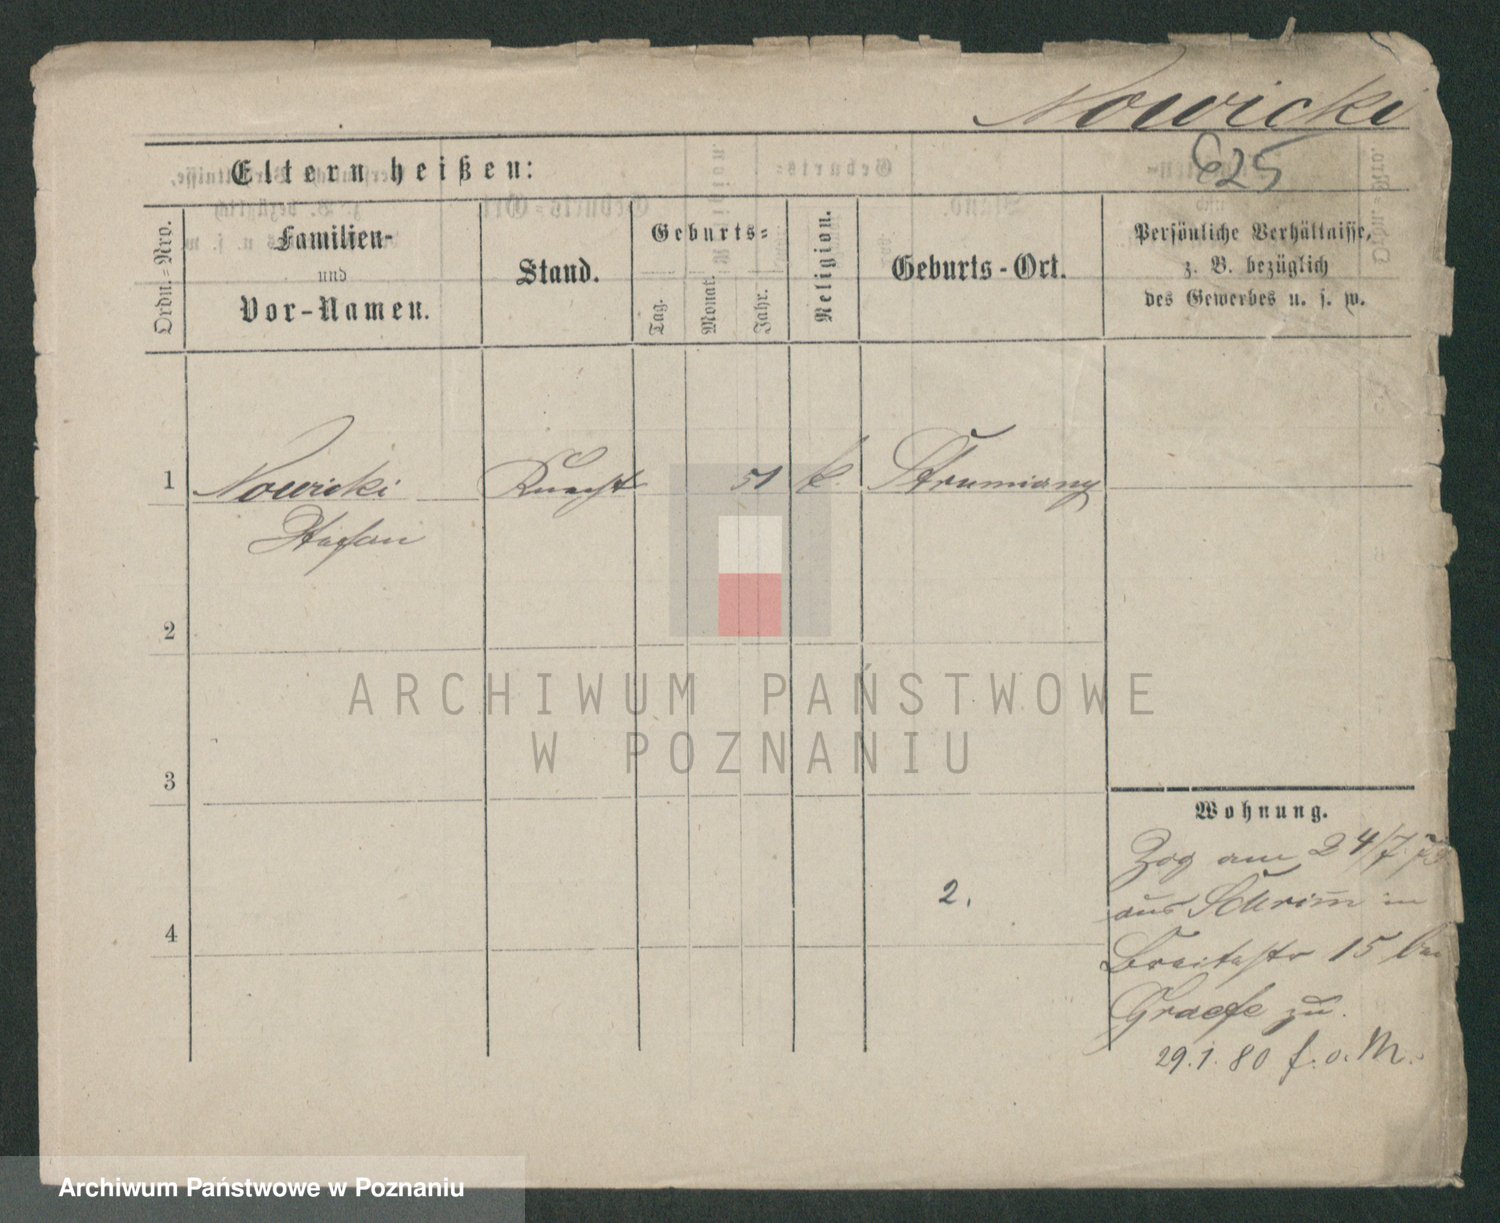 Nowicki
625
Eltern heißen:
Ordn.=Nro.
Familien-
und
Vor-Namen.
Stand.
Geburts=
Tag.
Monat.
Jahr.
Religion.
Geburts-Ort.
Persönliche Verhältnisse,
z. B. bezüglich
des Gewerbes u. s. w.
1 Nowicki Knecht 51 k. Strumiany
Stefan
2
3
4
2.
Wohnung.
Zog am 24/7.
aus Schrim̄ in
Breitestr 15 bei
Graefe zu.
29.1.80 f. o. M.
ARCHIWUM PAŃSTWOWE
W POZNANIU
Archiwum Państwowe w Poznaniu